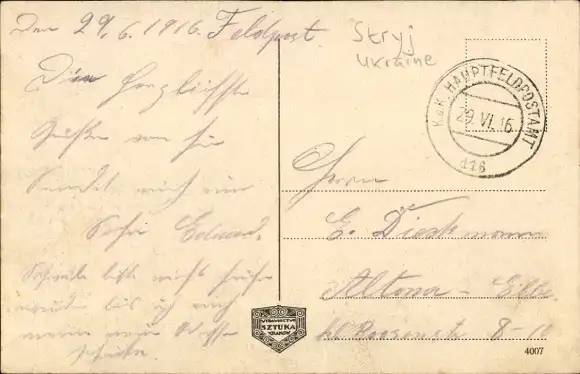 Den 29.6.1916. Feldpost.
Stryj
Ukraine
K.u.K. HAUPTFELDPOSTAMT
29 VI. 16
116
Die herzlichste
Grüße von hir
Sendet euch euer
Sohn Eduard.
Schreibe bitte nicht früher
bis ich euch
meine neue Adresse
schicke
Herrn
E. Dieckmann
Altona - Elbe
kl Roosenstr 8-10
WYDAWNICTWO
SZTUKA
KRAKÓW
4007